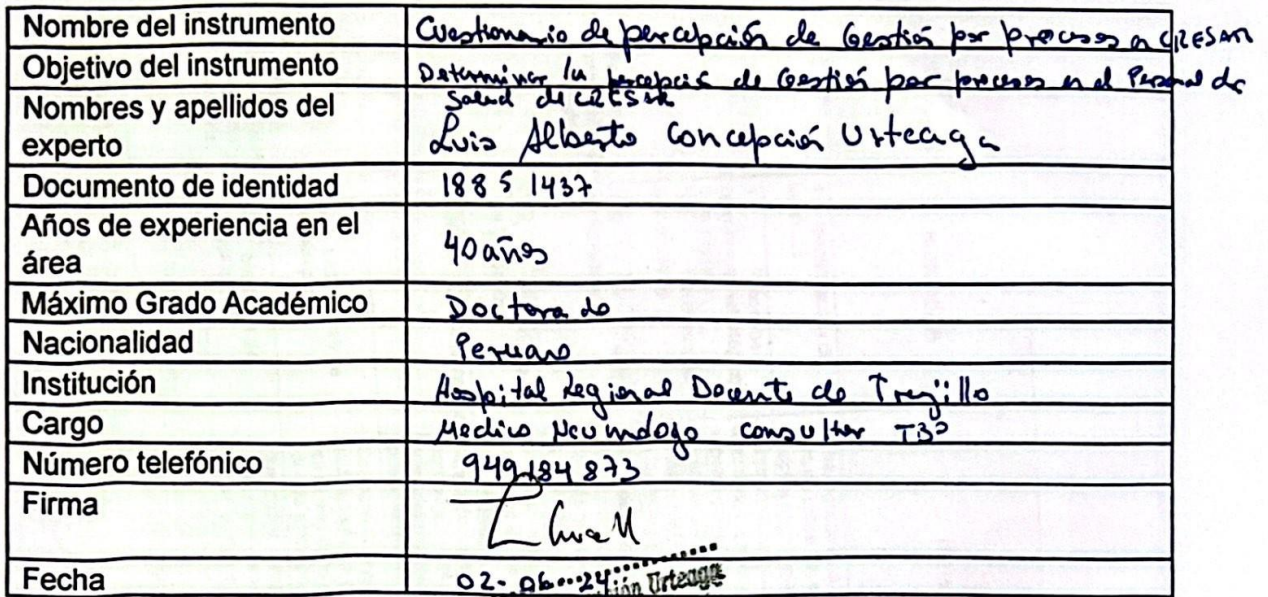 Nombre del instrumento Cuestionario de percepción de Gestión por procesos en CRESAR
Objetivo del instrumento Determinar la percepción de Gestión por procesos en el Personal de
salud de CRESAR
Nombres y apellidos del
experto Luis Alberto Concepción Urteaga
Documento de identidad 18851437
Años de experiencia en el
área 40 años
Máximo Grado Académico Doctorado
Nacionalidad Peruano
Institución Hospital Regional Docente de Trujillo
Cargo Medico Neumologo consultor
Número telefónico 949184873
Firma
Fecha 02-06-24
ión Urteaga